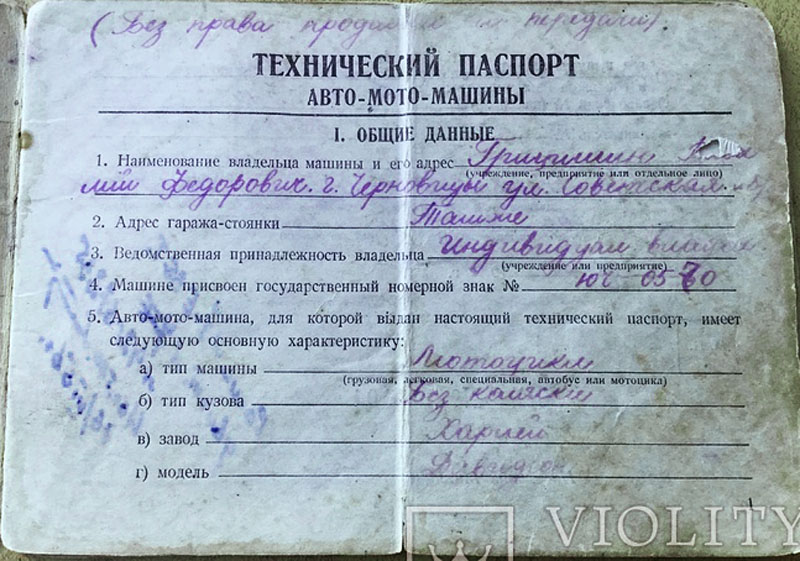 (Без права продажи и передачи)
ТЕХНИЧЕСКИЙ ПАСПОРТ
АВТО-МОТО-МАШИНЫ
I. ОБЩИЕ ДАННЫЕ
1. Наименование владельца машины и его адрес
(учреждение, предприятие или отдельное лицо)
Федорович г. Черновицы ул. Советская
2. Адрес гаража-стоянки
3. Ведомственная принадлежность владельца Индивидуал
(учреждение или предприятие)
4. Машине присвоен государственный номерной знак №
5. Авто-мото-машина, для которой выдан настоящий технический паспорт, имеет
следующую основную характеристику:
а) тип машины Мотоцикл
(грузовая, легковая, специальная, автобус или мотоцикл)
б) тип кузова Без коляски
в) завод Харлей
г) модель Давидсон
VIOLITY